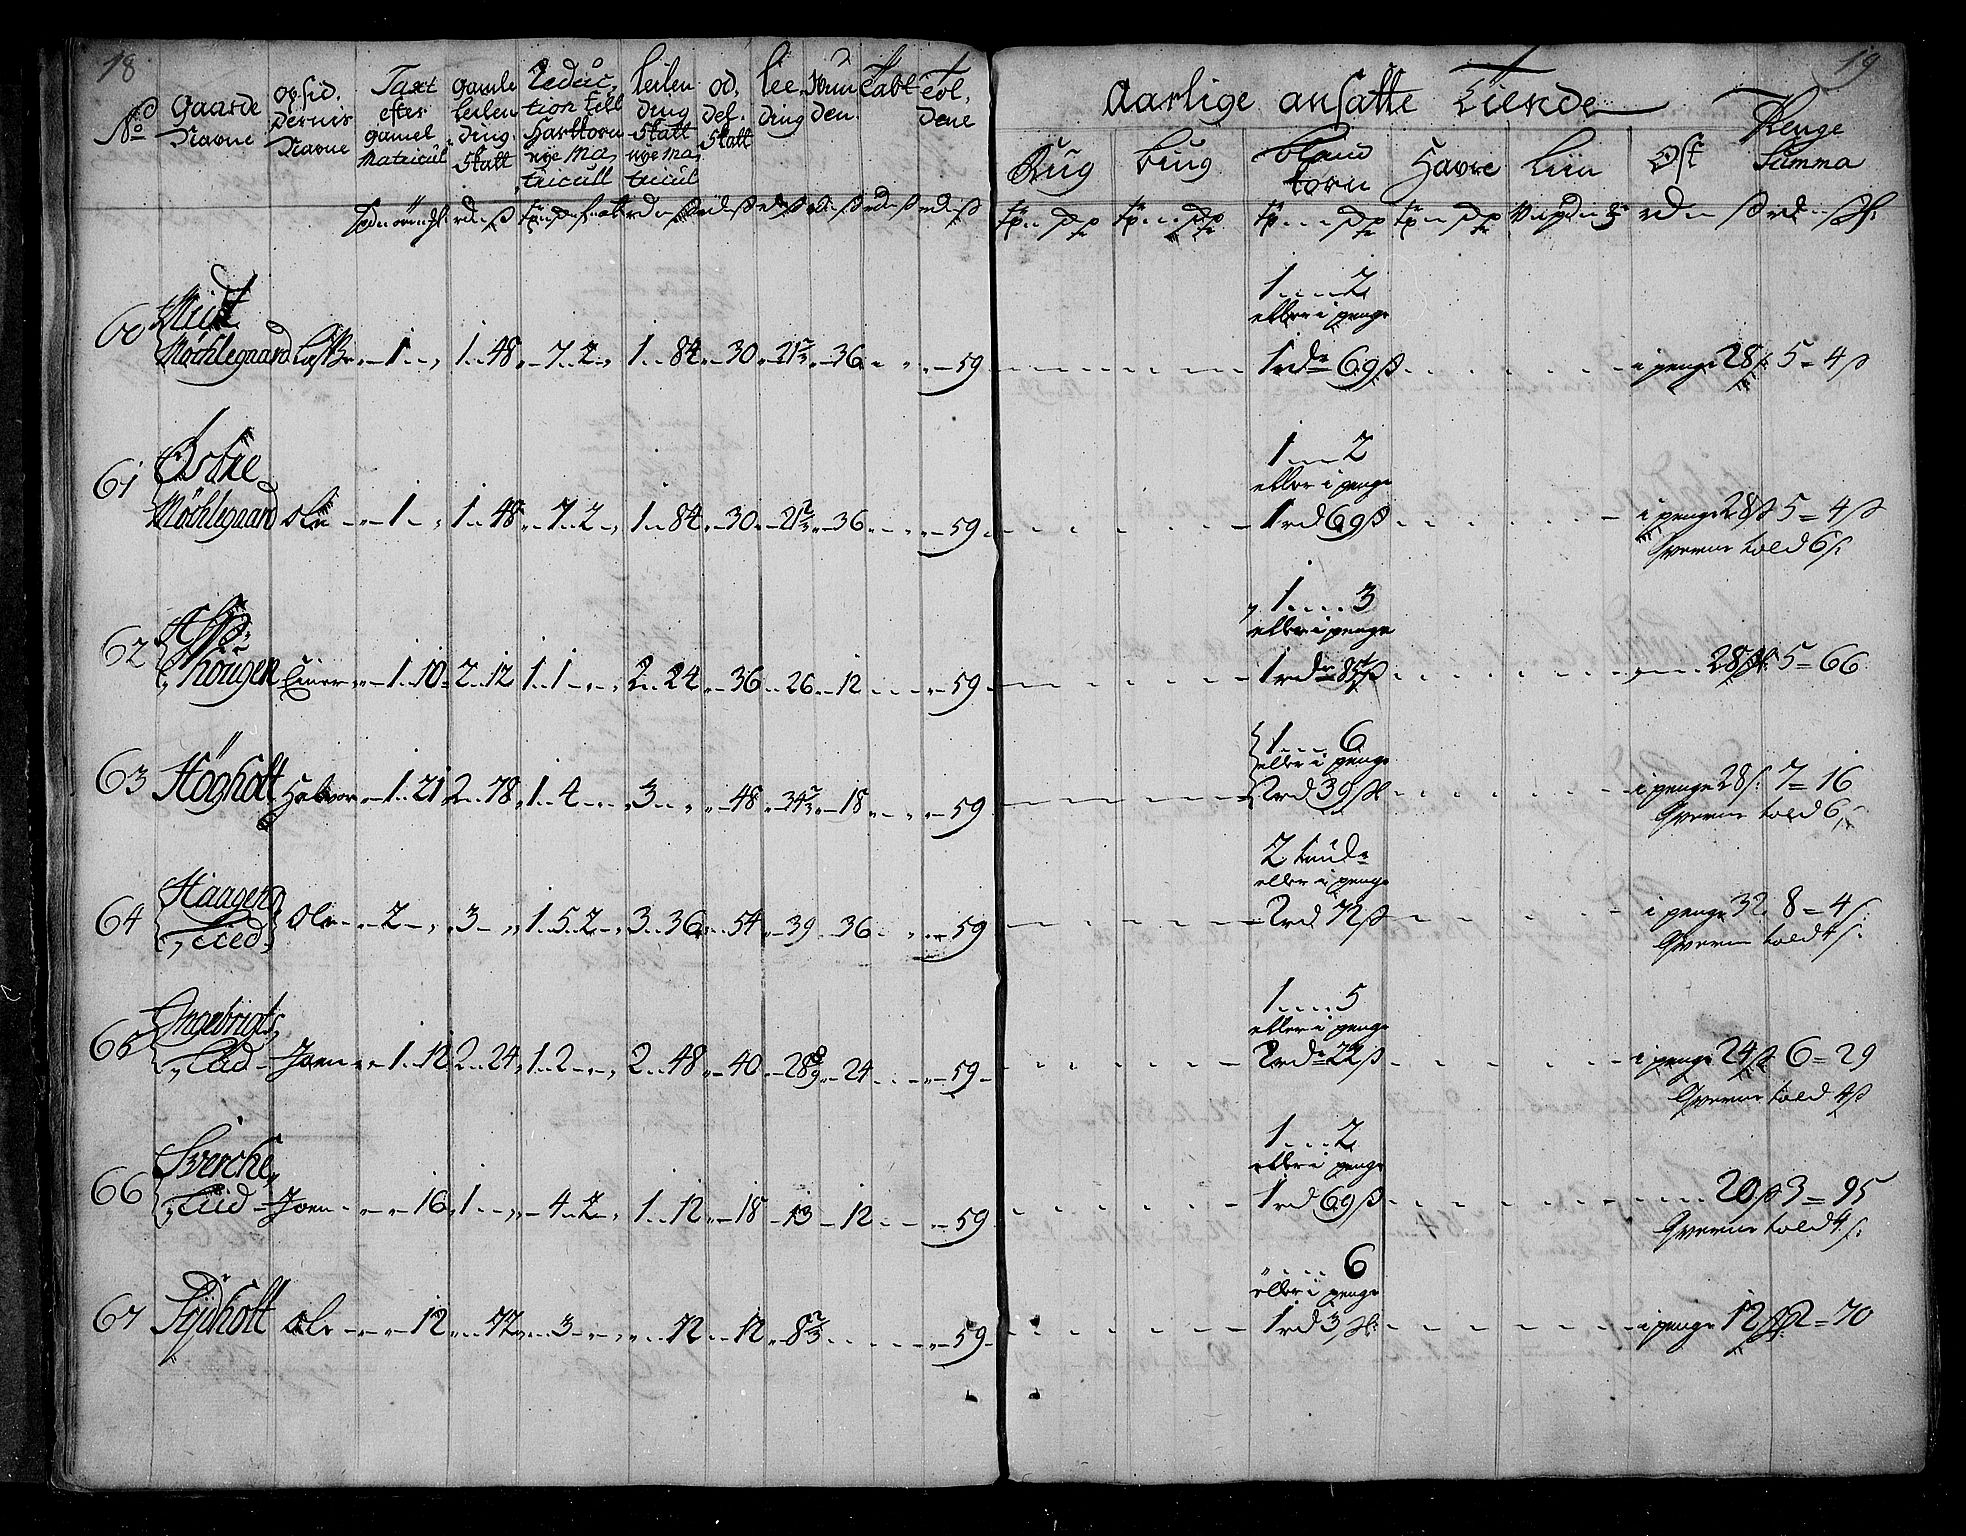 18
19
No
Gaarde Navne
opsid, dernis Navne
Taxt efter gamel Matricul
gamle leilen ding Skatt
Reduc, tion till Harttorn nye Ma, tricull
leilen ding Skatt nye Ma, tricul
od, del. Skatt
lee, ding
Tabt
Tol, dene
Aarlige ansatte Tiiende
Rug
biug
bland korn
Havre
Ost
Penge Summa
60 Mit Möchlegaard 1 1 48 7 2 1 84 30 21 2/3 36 59
1 2
eller i penge
1 rdr 69 ß
i penge 28 ß 5 = 4 ß
61 Östre Möchlegaard Ole 1 1 48 7 2 1 84 30 21 2/3 36 59
1 2
eller i penge
1 rd 69 ß
i penge 28 ß 5 = 4 ß
told 6 ß
62 hougen 1 10 2 12 1 1 2 24 36 26 12 59
1 3
eller i penge
28 5 = 66
63 Högholt Halvor 1 21 2 78 1 4 3 48 34 2/3 18 59
1 6
eller i penge
2 rd 39 ß
i penge 28 ß 7 = 16
Qverne told 6
64 Haagens, Liid Ole 2 3 1 5 2 3 36 54 39 36 59
2 tund
eller i penge
2 rd 72 ß
i penge 32 8 = 4 ß
Qverne told 4 ß
65 Ingebrigts, Liid Joen 1 12 2 24 1 2 2 48 40 28 8/9 24 59
1 5
eller i penge
2 rd 22 ß
i penge 24 ß 6 = 29
Qverne told 4 ß
66 Sverche, Liid Joen 16 1 4 2 1 12 18 13 12 59
1 2
eller i penge
1 rd 69 ß
20 ß 3 = 95
Qverne told 4 ß
67 Sydholt Ole 12 72 3 72 12 8 2/3 59
6
eller i penge
1 rd 3 ß
i penge 12 ß 2 = 70